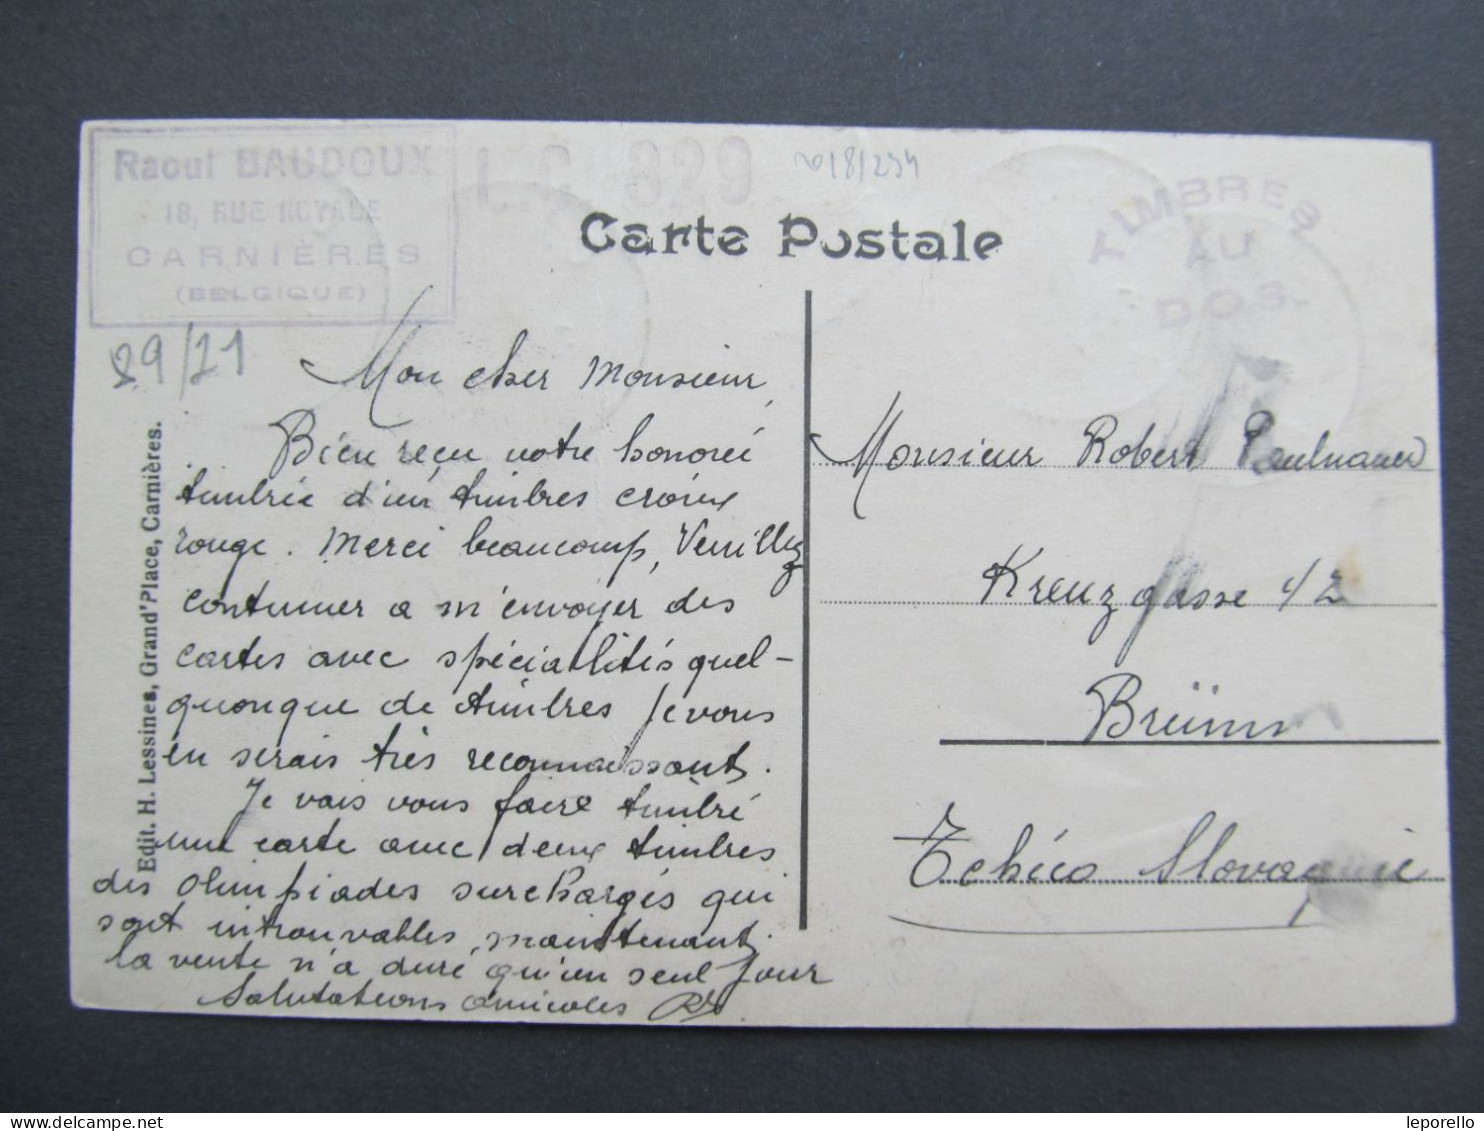 Raoul BAUDOUX
18, RUE ROYALE
CARNIÈRES
(BELGIQUE)
L.C 329
Carte Postale
TIMBRES
AU
DOS.
89/21
Edit. H. Lessines, Grand'Place, Carnières.
Mon cher Monsieur,
Bien reçu votre honoreé
timbrée d'un timbres croix
rouge. Merci beaucoup, Veuillez
continuer a m'envoyer des
cartes avec spécialités quel-
quonque de timbres Je vous
en serais très reconnaissant.
Je vais vous faire timbré
une carte avec deux timbres
des Olimpiades surchargés qui
sont introuvables, maintenant.
la vente n'a duré qu'un seul jour
Salutations amicales
Monsieur Robert
Kreuzgasse 42
Brünn
Tchéco Slovaquie
leporello